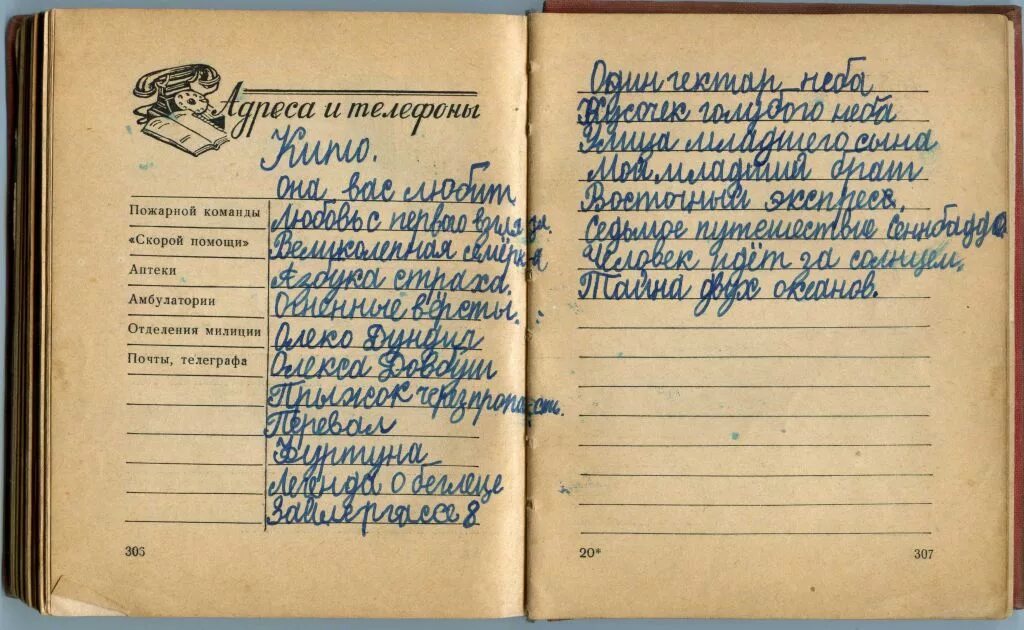 Адреса и телефоны
Кино.
Она вас любит
Пожарной команды
Любовь с первого взгляда.
«Скорой помощи»
Великолепная семёрка
Аптеки
Азбука страха.
Амбулатории
Огненные вёрсты.
Отделения милиции
Олеко Дундич
Почты, телеграфа
Олекса Довбуш
Прыжок через пропасть.
Перевал
Фуртуна
Легенда о беглеце
Займергассе 8
306
Один гектар неба
Кусочек голубого неба
Улица младшего сына
Мой младший брат
Восточный экспресс.
Седьмое путешествие Синнбадда
Человек идёт за солнцем.
Тайна двух океанов.
20*
307